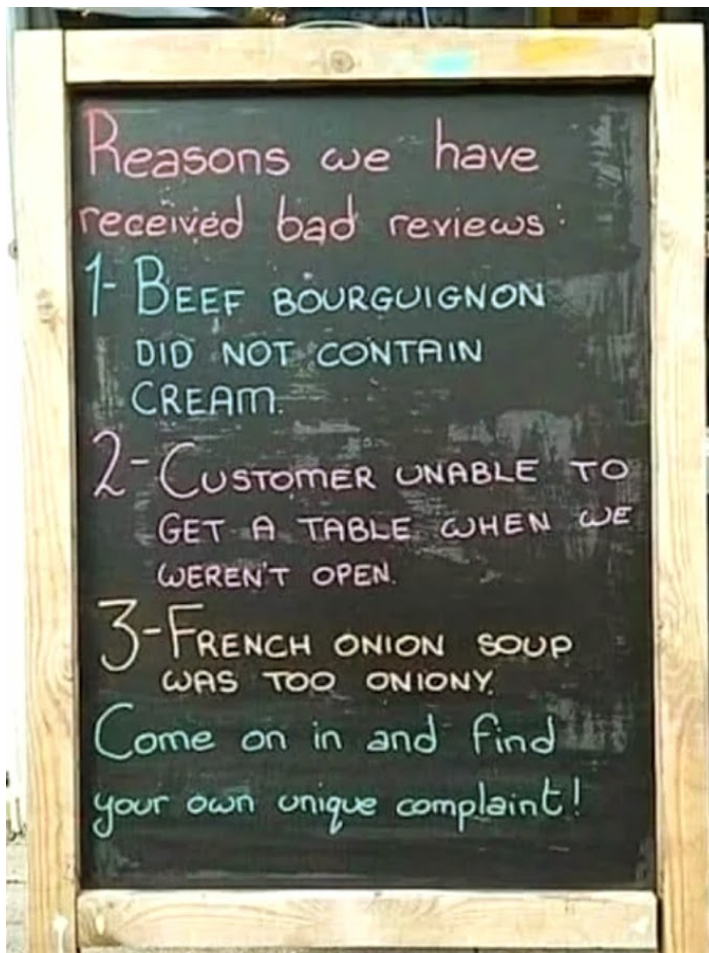 Reasons we have
received bad reviews:
1- BEEF BOURGUIGNON
DID NOT CONTAIN
CREAM.
2- CUSTOMER UNABLE TO
GET A TABLE WHEN WE
WEREN'T OPEN.
3- FRENCH ONION SOUP
WAS TOO ONIONY.
Come on in and find
your own unique complaint!